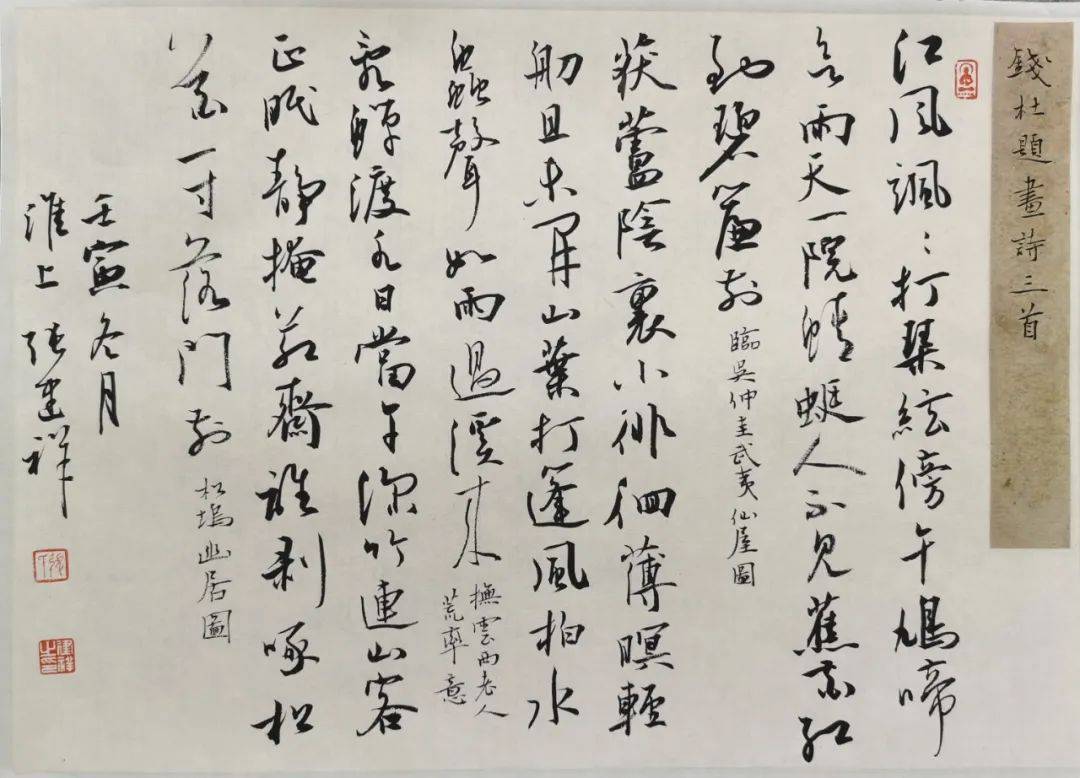 錢杜題畫詩三首
江風颯〻打琴絃傍午鳩啼
欲雨天一院蜻蜓人不見蕉花紅
到碧簾前
臨吳仲圭武夷仙屋圖
荻蘆陰裏小徘徊薄暝輕
舠且未開山葉打篷風拍水
蟲聲如雨過溪來
撫雲西老人
荒率意
亂蟬渡水日當午深竹連山客
正眠靜掩茆齋誰剝啄松
花一寸落門前
松塢幽居圖
壬寅冬月
淮上張建祥
建祥之印